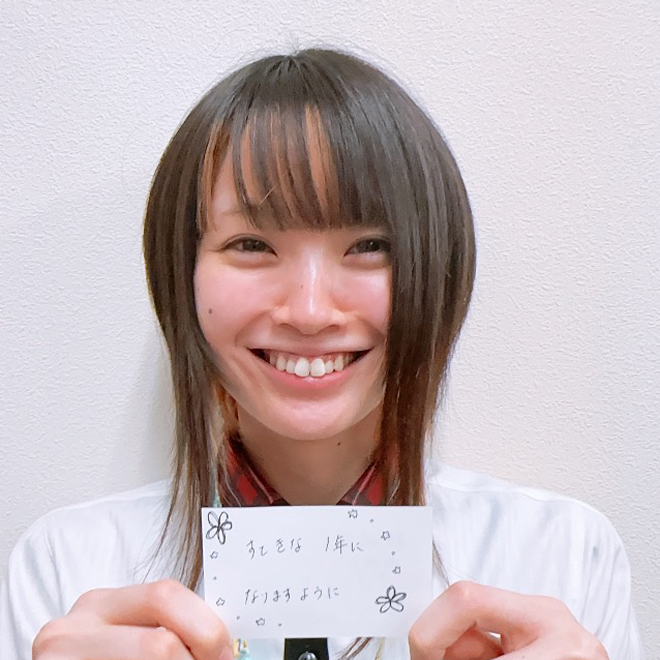 すてきな 1年に
なりますように